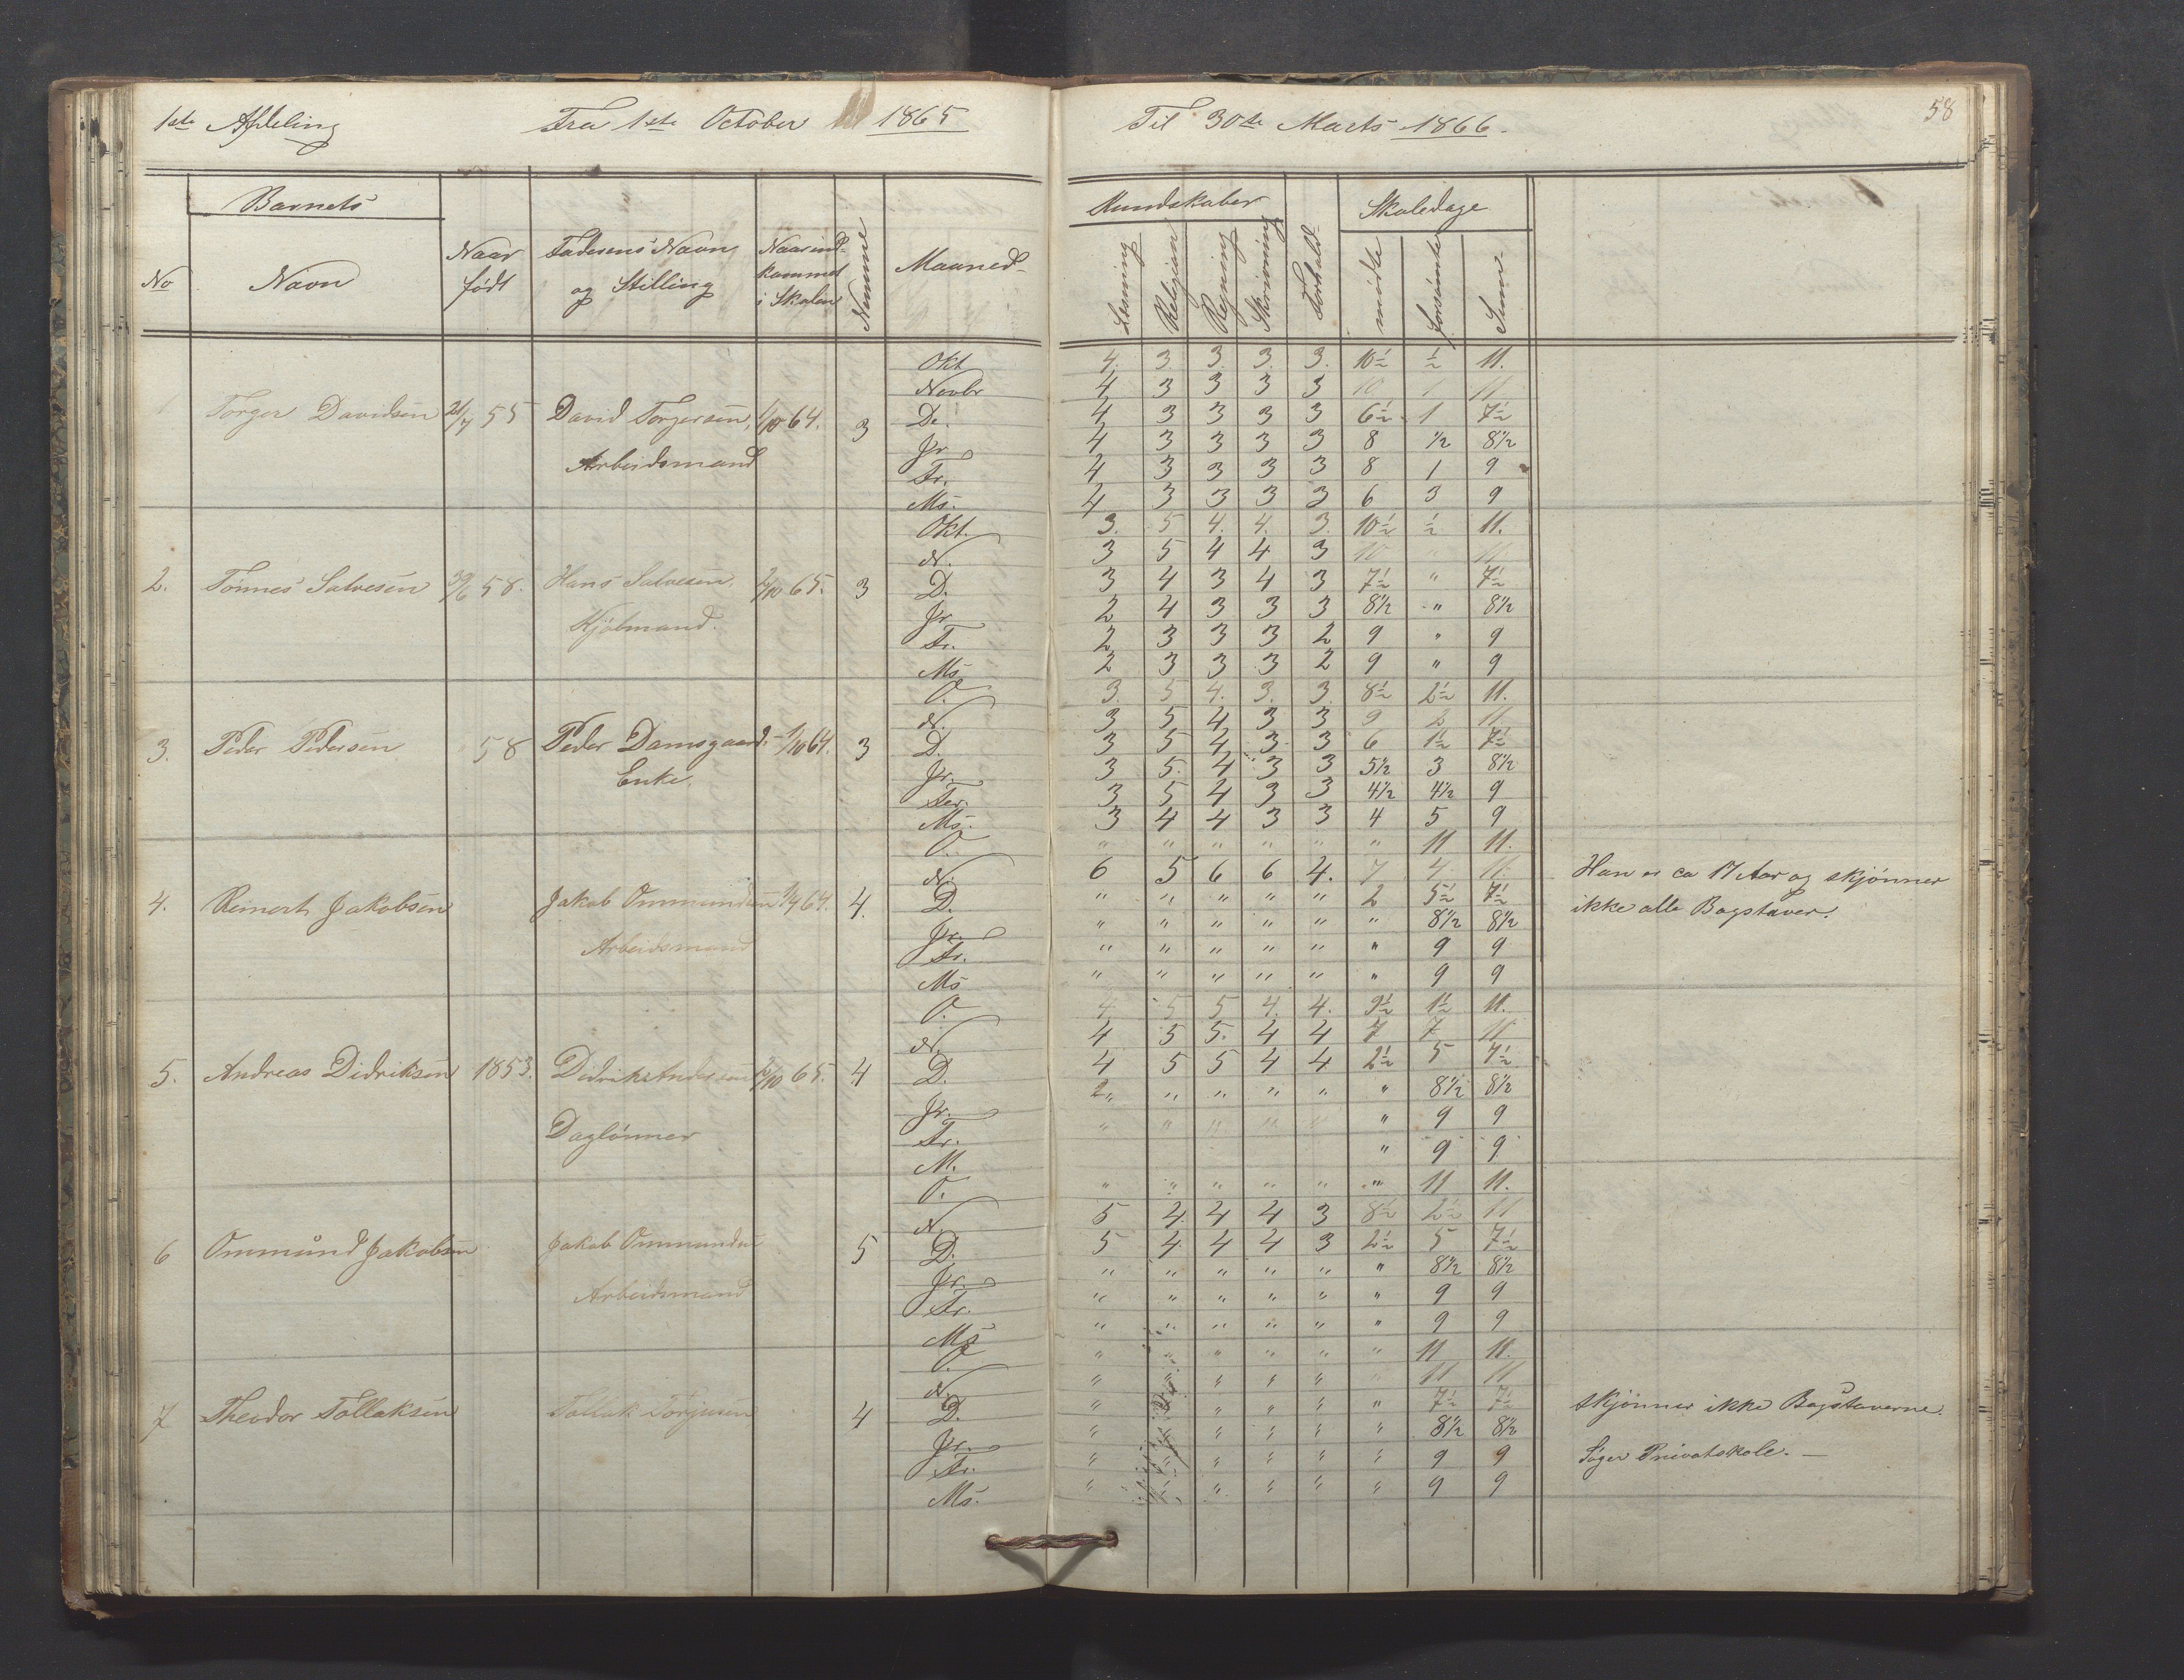 1ste Afdeling Fra 1ste October 1865 Til 30te Marts 1866. 58
Barnets Kundskaber Skoledage
No Navn Naar født Faderens Navn og Stilling Naar indkommet i Skolen Nemme Maaned Læsning Religion Regning Skrivning Forhold mødte forsømte Sum
Okt 4. 3. 3. 3. 3. 10½ ½ 11.
Novbr 4 3 3 3 3 10 1 11
1 Torger Davidsen 21/7 55 David Torgersen, 1/10 64. 3 De. 4 3 3 3 3 6½ 1 7½
Jr 4 3 3 3 3 8 ½ 8½
Arbeidsmand Fr. 4 3 3 3 3 8 1 9
Ms. 4 3 3 3 3 6 3 9
Okt. 3. 5 4. 4. 3. 10½ ½ 11.
N. 3 5 4 4 3 10 " 11
2. Tönnes Salvesen 58. Hans Salvesen, 2/10 65. 3 D. 3 4 3 4 3 7½ " 7½
Kjöbmand. Jr 2 4 3 3 3 8½ " 8½
Fr. 2 3 3 3 2 9 " 9
Ms 2 3 3 3 2 9 " 9
O. 3. 5 4. 3. 3. 8½ 2½ 11.
N. 3 5 4 3 3 9 2 11.
3. Peder Pedersen 58 Peder Damsgaard. 1/10 64. 3 D. 3 5 4 3 3 6 1½ 7½
Enke. Jr. 3 5. 4 3 3 5½ 3 8½
Fer. 3 5 4 3 3 4½ 4½ 9
Ms. 3 4 4 3 3 4 5 9
O. " " " " " " 11 11.
N. 6 5 6 6 4. 7 4 11. Han er ca 17 Aar og skjönner
4. Reinert Jakobsen Jakob Ommundsen 64. 4. D. " " " " " 2 5½ 7½ ikke alle Bogstaver.
Jr. " " " " " " 8½ 8½
Arbeidsmand Fr. " " " " " " 9 9
Ms " " " " " " 9 9
O. 4. 5 5 4. 4. 9½ 1½ 11.
N. 4 5 5. 4 4 7 11
5. Andreas Didriksen 1853. Didrik Andersen 65. 4 D. 4 5 5 4 4 2½ 5 7½
Jr. " " " " " 8½ 8½
Daglönner Fr. " " " " " " 9 9
M. " 9 9
O. " " " " " " 11 11.
N. 5 4. 4 4 3 8½ 2½ 11
6 Ommund Jakobsen Jakob Ommundsen 5 D. 5 4. 4 4 3 2½ 5 7½
Jr. " " " " " " 8½ 8½
Arbeidsmand Fr. " " " " " " 9 9
Ms " " " " " " 9 9
O. " " " " " " 11 11.
N. " " " " " " 11 11
7 Theodor Tollaksen Tollak Torjusen 4 D. " " " " " 7½ 7½ Skjönner ikke Bogstaverne.
Jr. " " " " " 8½ 8½
Fr. " " " " " 9 9 Söger Privatskole. —
Ms. " " " " " 9 9